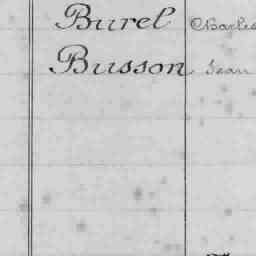 Burel Charles
Busson Jean